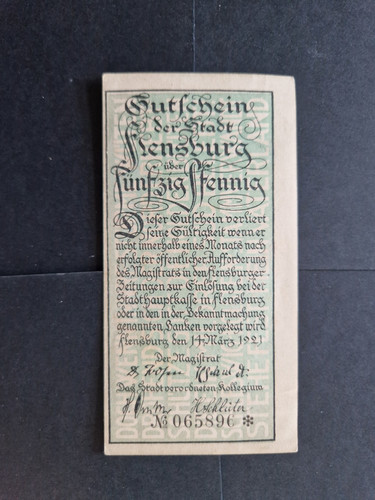 Gutschein
der Stadt
Flensburg
über
Fünfzig Pfennig
Dieser Gutschein verliert
seine Gültigkeit wenn er
nicht innerhalb eines Monats nach
erfolgter öffentlicher Aufforderung
des Magistrats in den Flensburger
Zeitungen zur Einlösung bei der
Stadthauptkasse in Flensburg
oder in den in der Bekanntmachung
genannten Banken vorgelegt wird
Flensburg, den 14 März 1921
Der Magistrat
Das Stadtverordneten-Kollegium
№ 065896 *